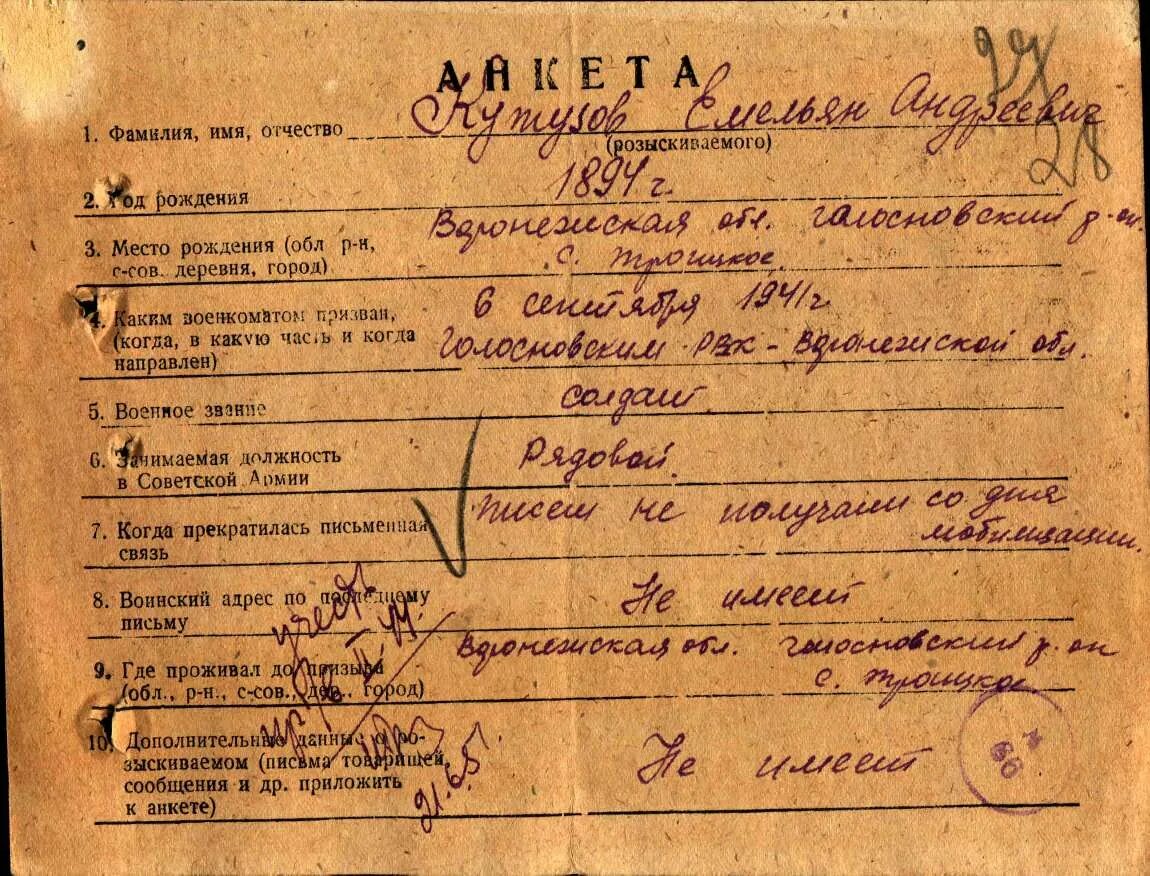 АНКЕТА
1. Фамилия, имя, отчество Кутузов Емельян Андреевич
(розыскиваемого)
28
2. Год рождения 1894 г.
3. Место рождения (обл р-н, Воронежская обл. Голосновский р-он.
с-сов. деревня, город) с. Троицкое
4. Каким военкоматом призван, 6 сентября 1941 г
(когда, в какую часть и когда Голосновским РВК - Воронежской обл.
направлен)
5. Военное звание солдат
6. Занимаемая должность Рядовой.
в Советской Армии
7. Когда прекратилась письменная писем не получали со дня
связь мобилизации.
8. Воинский адрес по последнему Не имеет
письму
учесть
9. Где проживал до призыва Воронежская обл. Голосновский р-он
(обл., р-н., с-сов., дер., город) с. Троицкое
10. Дополнительные данные о ро-
зыскиваемом (письма товарищей, Не имеет
сообщения и др. приложить
к анкете)
60